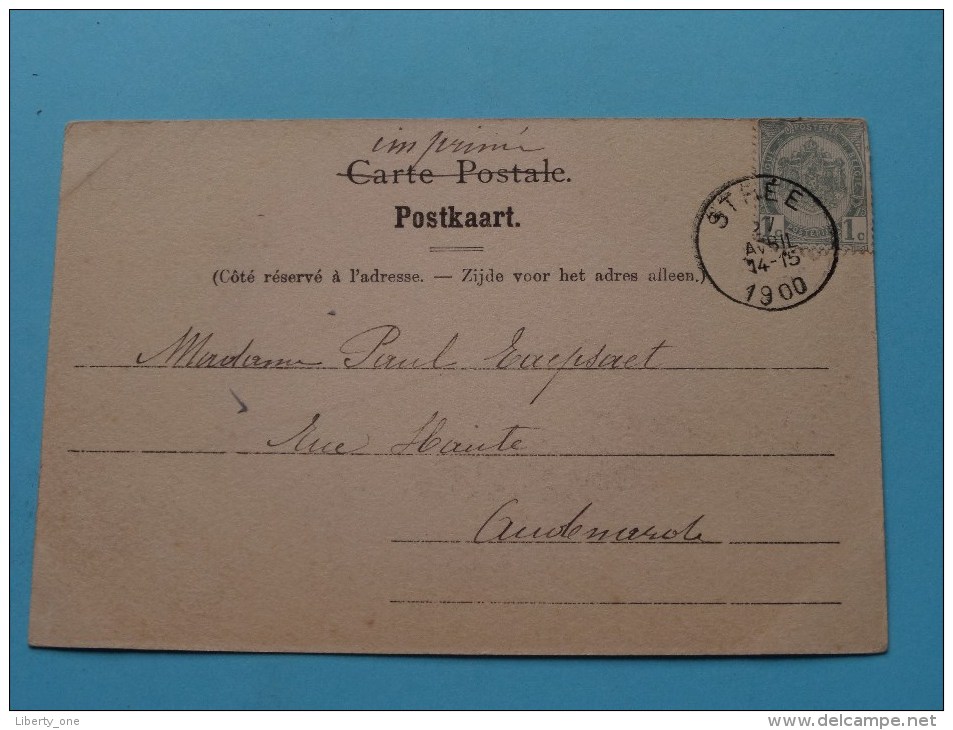 imprimé
Carte Postale.
Postkaart.
(Côté réservé à l'adresse. — Zijde voor het adres alleen.)
STRÉE
AVRIL
14-15
1900
1c 1c
Madame Paul Raepsaet
Rue Haute
Audenarde
Liberty_one
http://www.delcampe.net